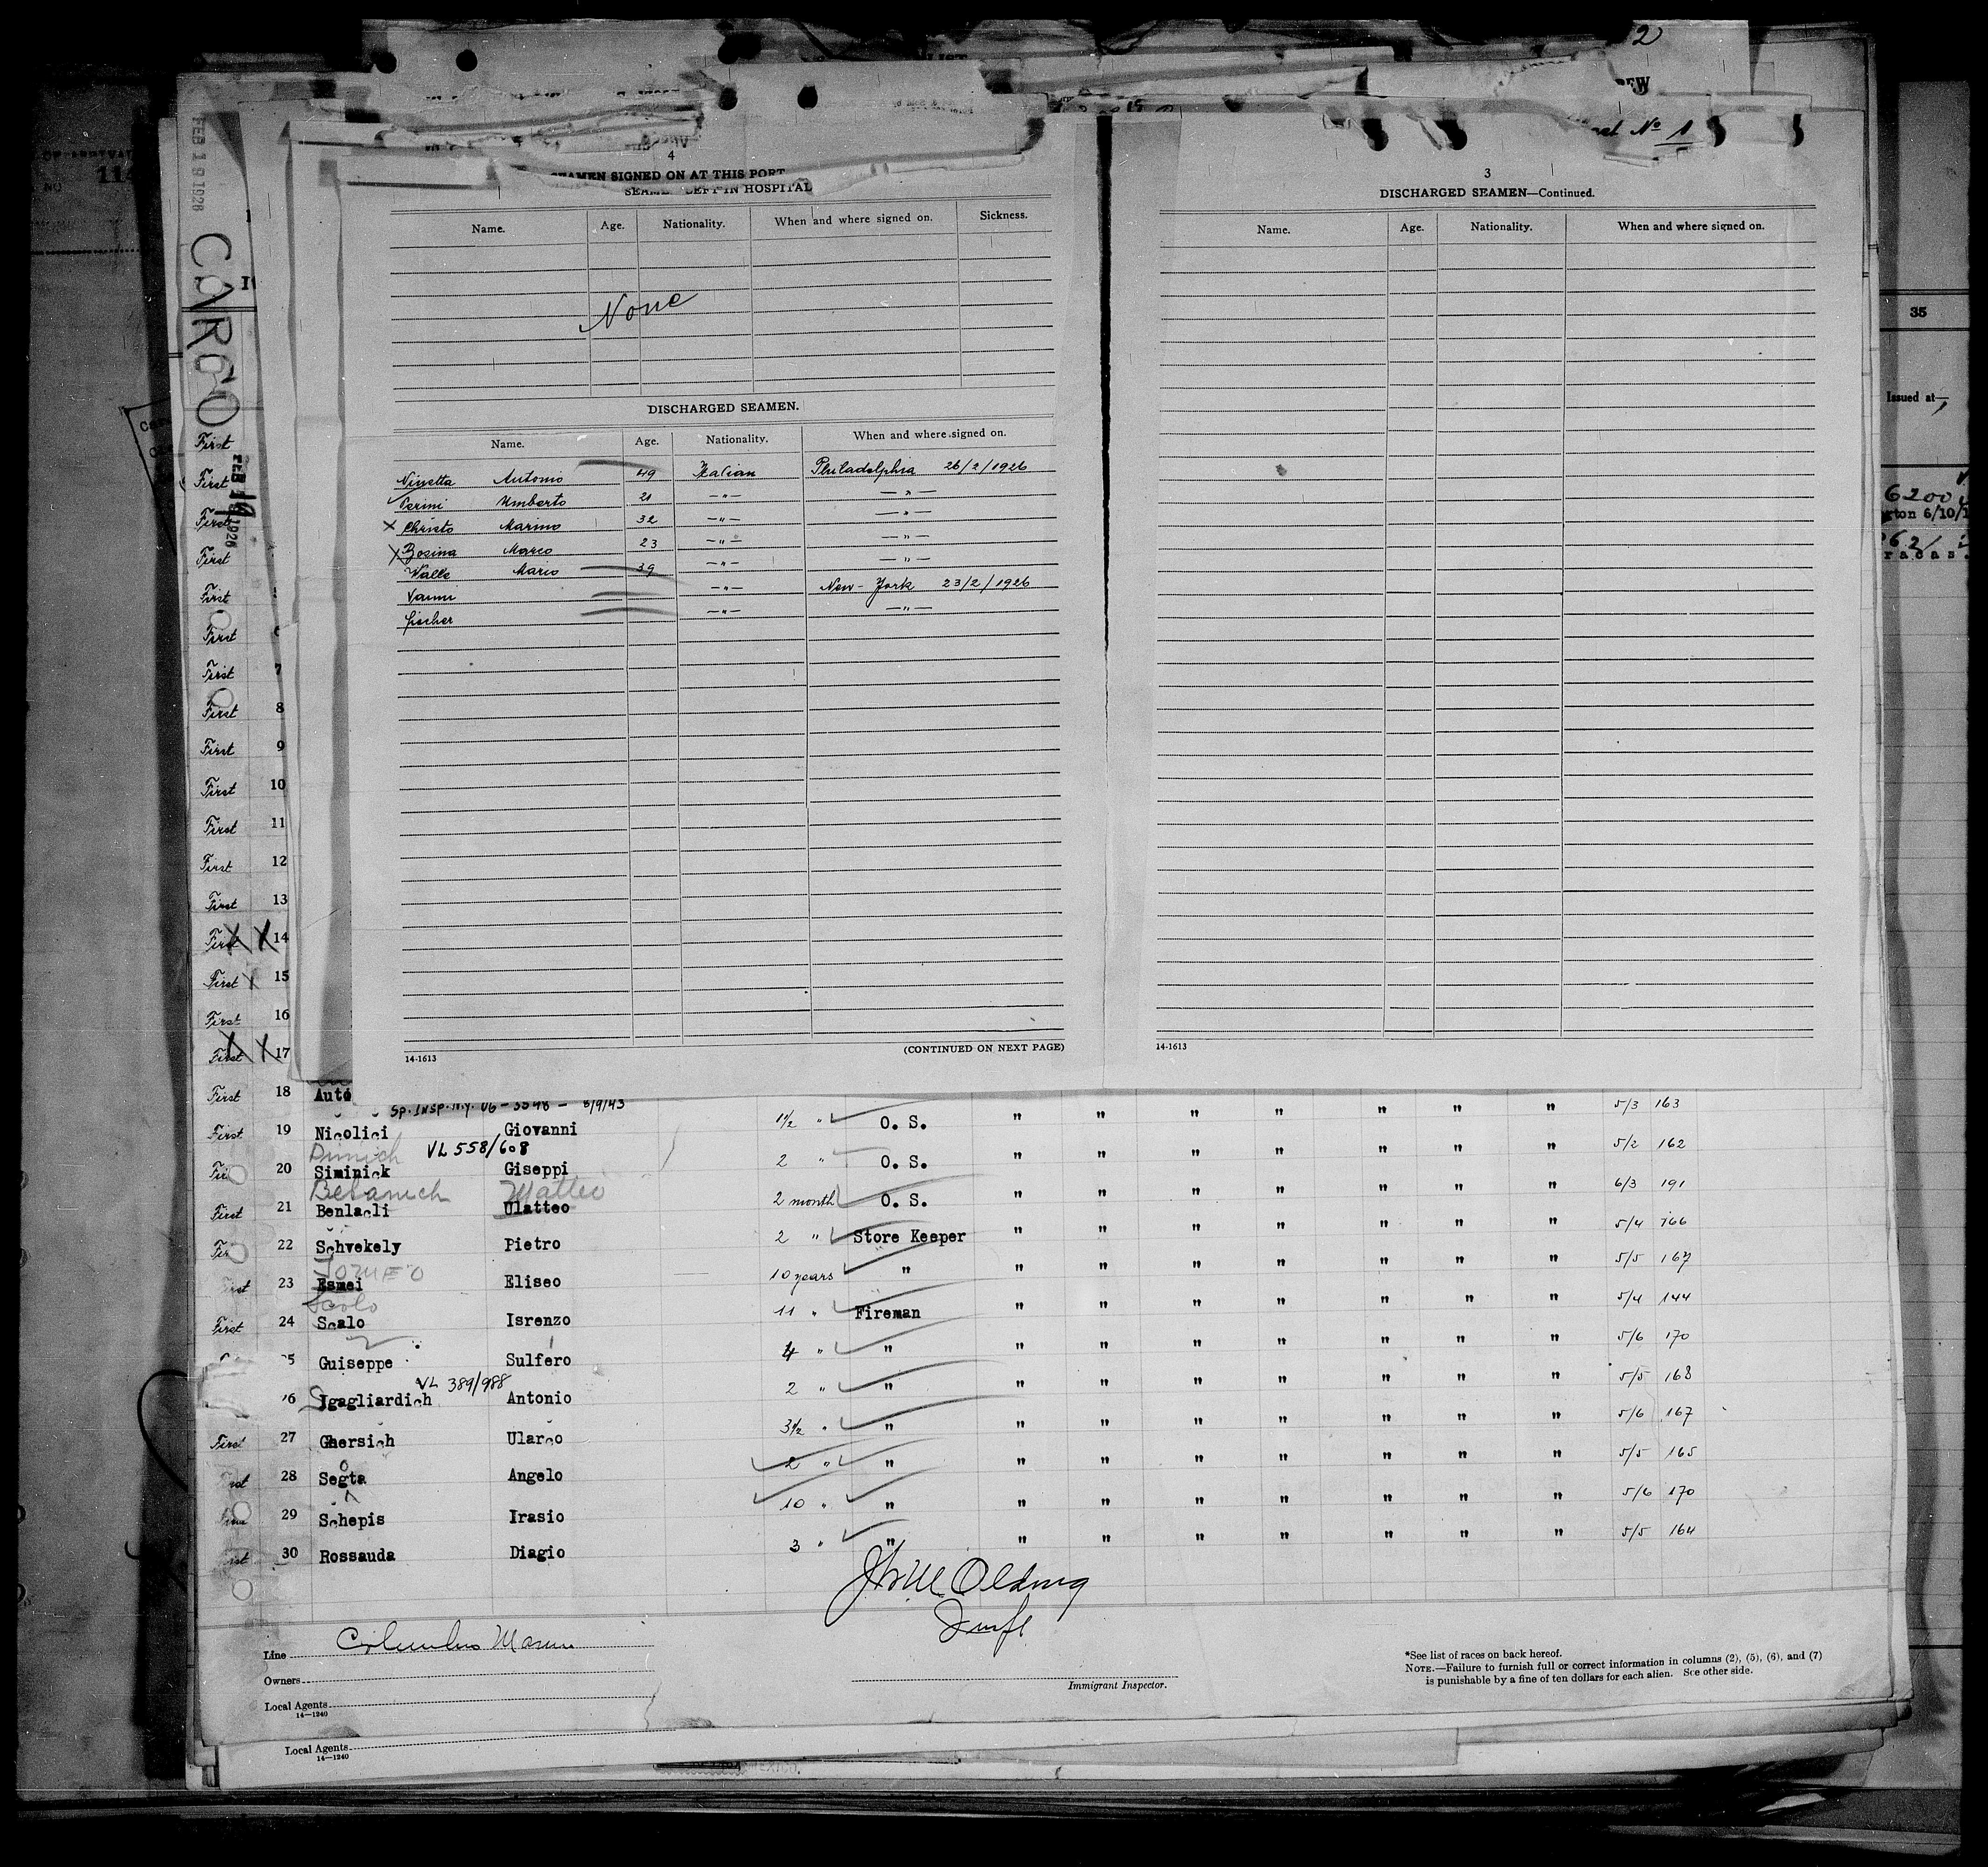 2
FEB 19 1926
CARGO
4
SEAMEN SIGNED ON AT THIS PORT
SEAMEN LEFT IN HOSPITAL
Name. Age. Nationality. When and where signed on. Sickness.
None
DISCHARGED SEAMEN.
Name. Age. Nationality. When and where signed on.
Ninetta Antonio 49 Italian Philadelphia 26/2/1926
Perini Umberto 21 —"— —"—
X Christo Marino 32 —"— —"—
X Bosina Marco 23 —"— —"—
Valle Mario 39 —"— —"—
Vanni —"— New-York 23/2/1926
fischer —"— —"—
14-1613 (CONTINUED ON NEXT PAGE)
No 1
3
DISCHARGED SEAMEN—Continued.
Name. Age. Nationality. When and where signed on.
14-1613
35
Issued at—
6200
6/10/
First
First
First
First
First
First
First 7
First 8
First 9
First 10
First 11
First 12
First 13
First X X 14
First X 15
First 16
First X X 17
First 18
Sp. Insp. N.Y. 06-3548 - 8/9/43
First 19 Nicolici Giovanni 1½ " O. S. " " " " " " " 5/3 163
Dimich VL 558/608
20 Siminick Giseppi 2 " O. S. " " " " " " " 5/2 162
Betanich Matteo
First 21 Benlacli Ulatteo 2 month O. S. " " " " " " " 6/3 191
22 Schvekely Pietro 2 " Store Keeper " " " " " " " 5/4 166
23 Esmei Eliseo 10 years " " " " " " " " 5/5 167
Scolo
First 24 Scalo Isrenzo 11 " Fireman " " " " " " " 5/4 144
Guiseppe Sulfero 4 " " " " " " " " " 5/6 170
VL 389/988
Igagliardich Antonio 2 " " " " " " " " " 5/5 168
First 27 Ghersich Ularco 3½ " " " " " " " " " 5/6 167
28 Segta Angelo 2 " " " " " " " " " 5/5 165
29 Schepis Irasio 10 " " " " " " " " " 5/6 170
30 Rossauda Diagio 3 " " " " " " " " " 5/5 164
Line
Owners
Local Agents
14—1240
Immigrant Inspector.
*See list of races on back hereof.
NOTE.—Failure to furnish full or correct information in columns (2), (5), (6), and (7)
is punishable by a fine of ten dollars for each alien. See other side.
Local Agents
14—1240